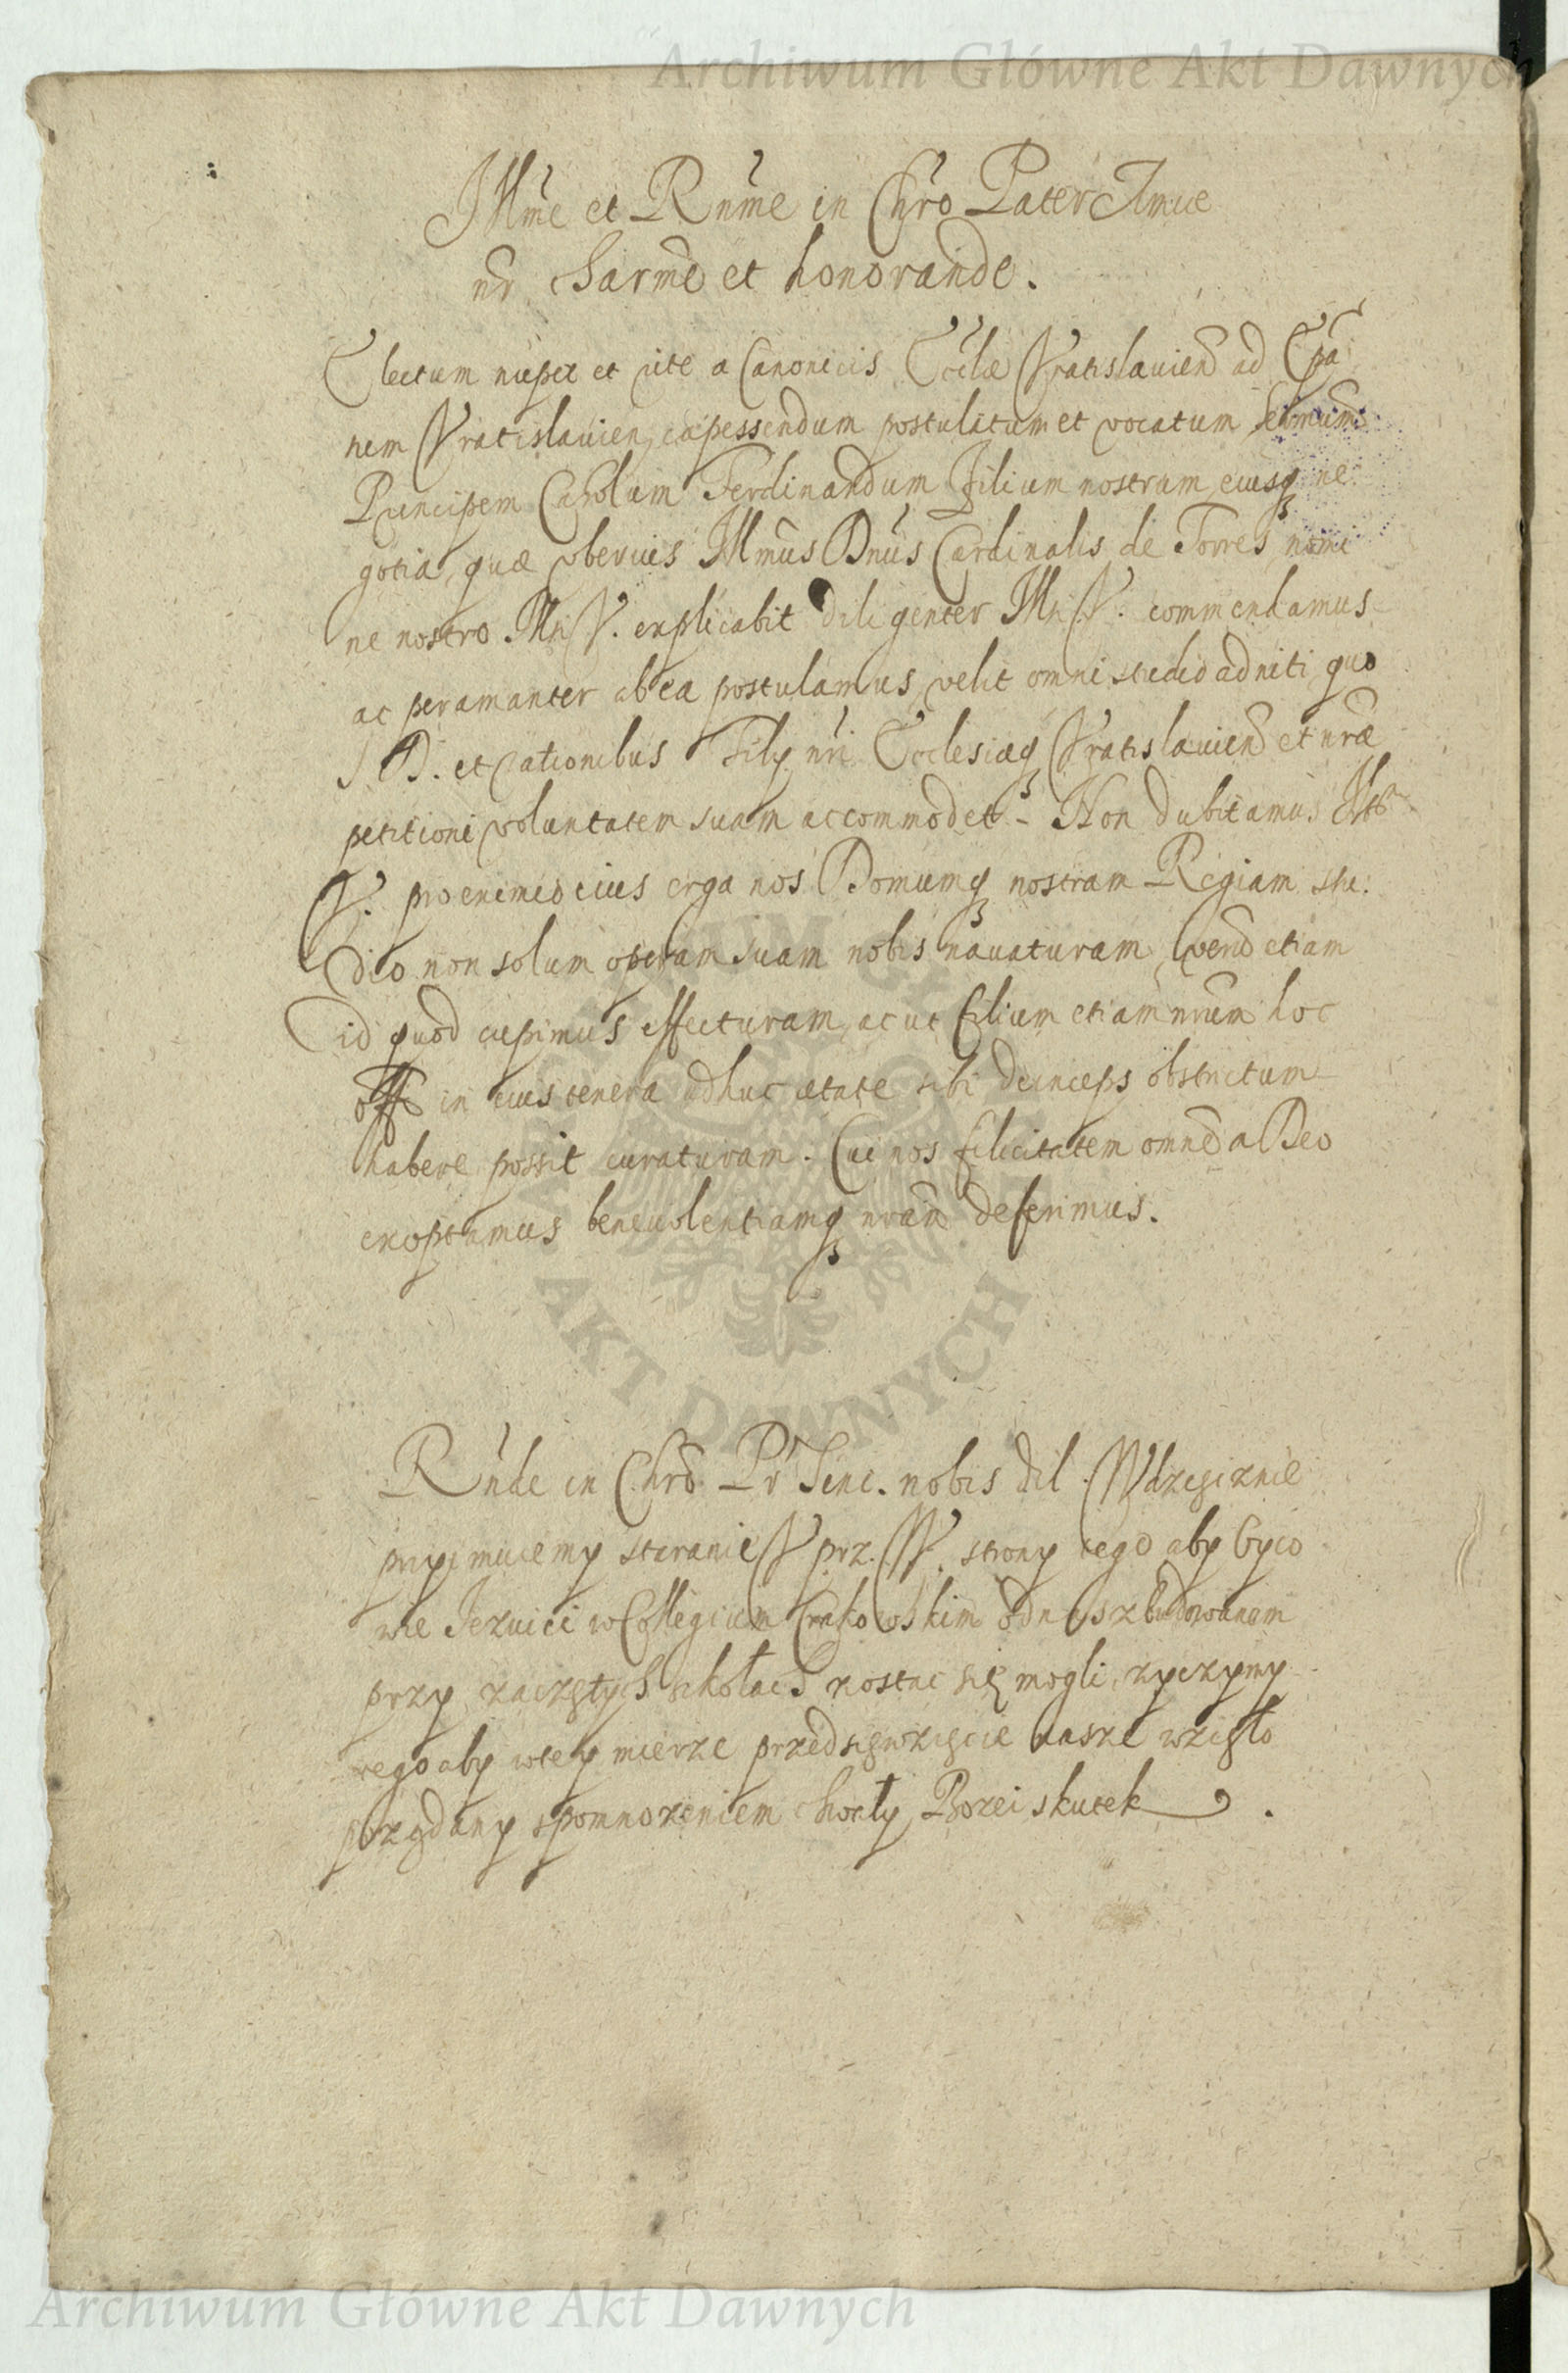 Archiwum Główne Akt Dawnych
Illme et Rnme in Chro Pater Amice
nr Charme et honorande.
Electum nuper et rite a Canonicis Ecclae Vratislavien ad Epa
nem Vratislavien, capessendum postulatum et vocatum Sermum
Principem Carolum Ferdinandum Filium nostrum, eiusq ne
gotia, quae uberius Illmus Dnus Cardinalis de Torres, nomi
ne nostro Illri V. explicabit diligenter Illri V. commendamus
ac peramanter ab ea postulamus, velit omni studio adniti, quo
S D. et rationibus Filij nri Ecclesiaeq Vratislavien et nrae
petitioni voluntatem suam accommodet. Non dubitamus
V. pro eximio eius erga nos Domumq nostram Regiam stu:
dio non solum operam suam nobis navaturam, verum etiam
id quod cupimus effecturam, ac ut Filium etiam nrum hoc
offo in eius tenera adhuc aetate sibi deinceps obstrictum
habere possit curaturam. Cui nos felicitatem omnem a Deo
exoptamus benevolentiamq nram deferimus.
AKT DAWNYCH
Rnde in Chro Pr Sinc. nobis dil. Wdzięcznie
przyimuiemy staranie W prz. W. strony tego aby Oyco
wie Jezuici w Collegium Crakowskim od nas zbudowanem
przy zaczętych szkołach zostac się mogli, zyczymy
tego aby w tey mierze przedsięwzięcie nasze wzięło
pozędany z pomnozeniem chwały Bozei skutek.
Archiwum Główne Akt Dawnych